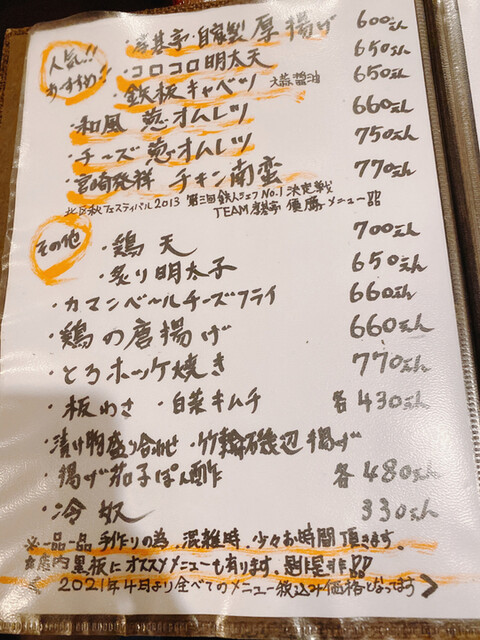 人気!! おすすめ!
・孝基亭・自家製 厚揚げ 600えん
・コロコロ明太天 650えん
・鉄板キャベツ 大蒜醤油 650えん
・和風 葱オムレツ 660えん
・チーズ葱オムレツ 750えん
・宮崎発祥 チキン南蛮 770えん
北区秋フェスティバル2013 第三回鉄人シェフNo.1決定戦
TEAM孝基亭 優勝メニュー品
その他
・鶏天 700えん
・炙り明太子 650えん
・カマンベールチーズフライ 660えん
・鶏の唐揚げ 660えん
・とろホッケ焼き 770えん
・板わさ ・白菜キムチ 各430えん
・漬け物盛り合わせ ・竹輪磯辺揚げ
・揚げ茄子ぽん酢 各480えん
・冷奴 330えん
※一品一品 手作りの為、混雑時、少々お時間頂きます。
★店内黒板にオススメメニューも有ります。
2021年4月より全べてのメニュー税込み価格となってます